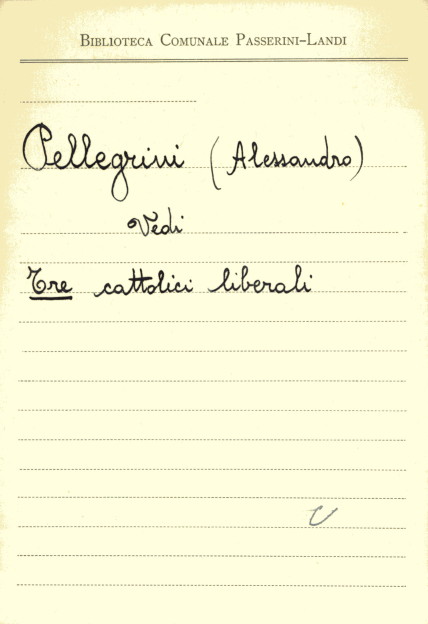 BIBLIOTECA COMUNALE PASSERINI-LANDI
Pellegrini (Alessandro)
Vedi
Tre cattolici liberali